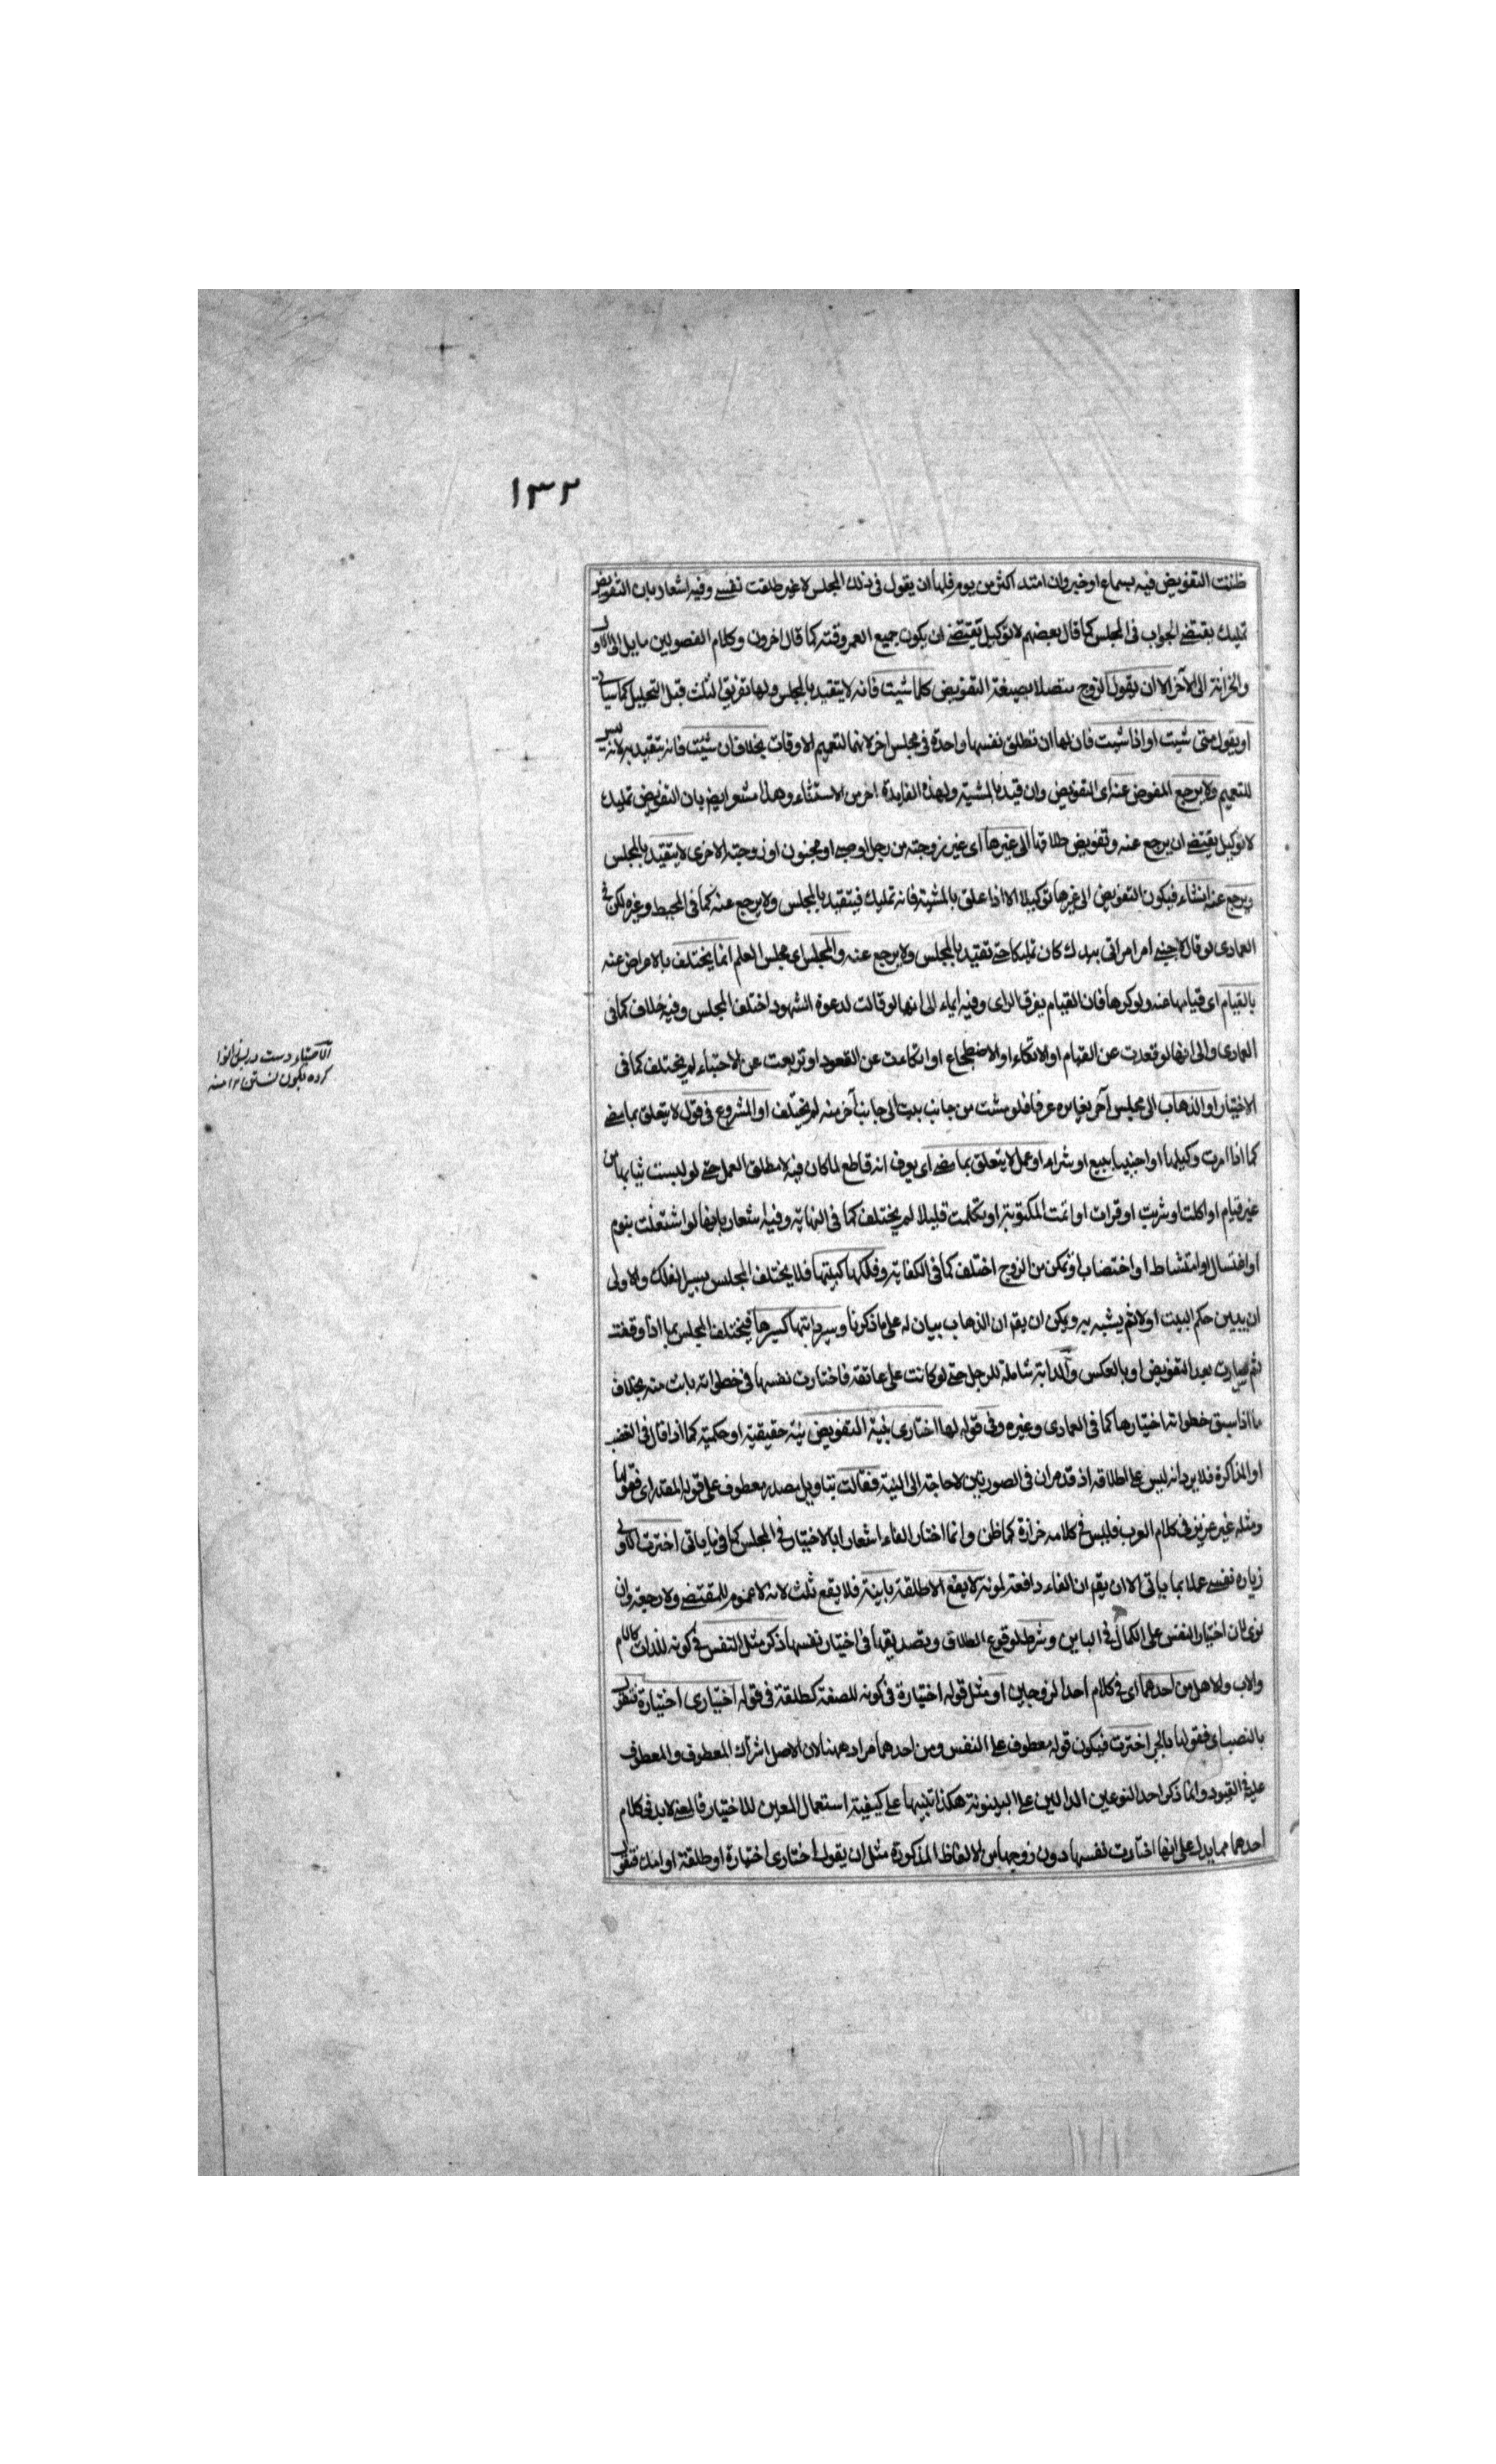 ١٣٢
ظنت التفويض فيه بسماع او خبر وان امتد اكثر من يوم فلها ان يقول فى ذلك المجلس لا غير طلقت نفسے وفيه اشعار بان التفويض
تمليك يقتضے الجواب فى المجلس كما قال بعضهم لا توكيل يقتضے ان يكون جميع العمر وقته كما قال اخرون وكلام الفصولين مايل الى الاول
والخزانة الى الآخر الا ان يقول الزوج متصلا بصيغة التفويض كلما شيت فانه لا يتقيد بالمجلس ولها تفريق الثلث قبل التحليل كما سياتى
او يقول متى شيت او اذا شيت فان لها ان تطلق نفسها واحدة فى مجلس اخر لانهما لتعميم الاوقات بخلاف ان شيت فانه يتقيد به لانه ليس
للتعميم ولا يرجع المفوض عنه اى التفويض وان قيد بالمشية ولهذه الفايدة اخر من الاستثناء وهذا مشعر ايضا بان التفويض تمليك
لا توكيل يقتضے ان يرجع عنه وتفويض طلاقها الى غيرها اى غير زوجته من رجل او صبے او مجنون او زوجته الاخرى لا يتقيد بالمجلس
ويرجع عنه ان شاء فيكون التفويض الى غيرها توكيلا الا اذا علق بالمشية فانه تمليك فيتقيد بالمجلس ولا يرجع عنه كما فى المحيط وغيره لكن فى
العمادى لو قال لاجنبے امر امراتى بيدك كان تمليكا حتے تقيد بالمجلس ولا يرجع عنه والمجلس اى مجلس العلم انما يختلف بالاعراض عنه
بالقيام اى قيامها عنه ولو كرها فان القيام يفرق الراى وفيه ايماء الى انها لو قالت لدعوة الشهود اختلف المجلس وفيه خلاف كما فى
العمادى والى انها لو قعدت عن القيام او الاتكاء او الاضطجاع او اتكاءت عن القعود او تربعت عن الاحتباء لم يختلف كما فى
الاختيار او الذهاب الى مجلس آخر يغايره عرفا فلو مشت من جانب بيت الى جانب آخر منه لم يختلف او الشروع فى قول لا يتعلق بما مضے
كما اذا امرت وكيلها او اجنبيا ببيع او شراء او عمل لا يتعلق بما مضے اى يعرف انه قاطع لما كان فيه لا مطلق العمل حتے لو لبست ثيابها من
غير قيام او اكلت او شربت او قرات او اتمت المكتوبة او تكلمت قليلا لم يختلف كما فى النهاية وفيه اشعار بانها لو اشتغلت بنوم
او اغتسال او امتشاط او اختضاب او تمكن من الزوج اختلف كما فى الكفاية وفلكها كبيتها فلا يختلف المجلس بسير الفلك والاولى
ان يبين حكم البيت اولا ثم يشبه به ويمكن ان يقم ان الذهاب بيان له على ما ذكرنا وسير دابتها كسيرها فيختلف المجلس بما اذا وقفت
ثم سارت بعد التفويض او بالعكس والدابة شاملة للرجل حتے لو كانت على عاتقه فاختارت نفسها فى خطواته بانت منه بخلاف
ما اذا سبق خطواته اختيارها كما فى العمادى وغيره وفى قوله لها اختارى بنية التفويض نية حقيقية او حكمية كما اذا قال فى الغضب
او المذاكرة فلا يرد انه ليس على اطلاقه اذ قد مر ان فى الصورتين لا حاجة الى النية فقالت بتاويل مصدر معطوف على قوله المقدر اى فقولها
ومثله غير عزيز فى كلام العرب فليس فى كلامه خزازة كما ظن وانما اختار الفاء اشعارا بالاختيار فى المجلس كما فى ما ياتى اخترت الاولى
زياده نفسے عملا بما ياتى الا ان يقم ان الفاء دافعة لمونة لا يقع الا طلقة باينة فلا يقع ثلث لانه لا عموم للمقتضے ولا رجعة وان
نوى لان اختيار النفس على الكمال فى الباين وشرط لوقوع الطلاق وتصديقها فى اختيار نفسها ذكر مثل النفس فى كونه للذات كالام
والاب والاهل من احدهما اى فى كلام احد الزوجين او مثل قوله اختيارة فى كونه للصفة كطلقة فى قوله اختيارى اختيارة فتقول
بالنصب اى فقولها بالجر اخترت فيكون قوله معطوف على النفس ومن احدهما مراد ههنا لان الاصل اشراك المعطوف والمعطوف
عليه فى القيود وانما ذكر احد النوعين الدالين على البينونة هكذا تنبيها على كيفية استعمال المعين للاختيار فالمعنے لا بد فى كلام
احدهما مما يدل على انها اختارت نفسها دون زوجها من الالفاظ المذكورة مثل ان يقول اختارى اختيارة او طلقة او امك فتقول
الاحتباء دست در پس زانوا
كرده نكون نشستن ١٢ منه